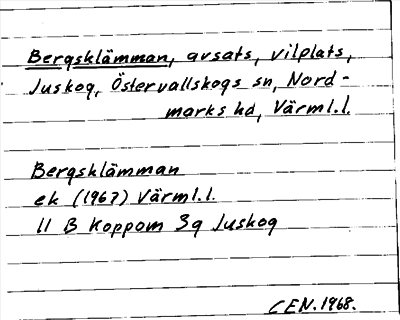 Bergsklämman, avsats, vilplats,
Juskog, Östervallskogs sn, Nord-
marks hd, Värml.l.
Bergsklämman
ek (1967) Värml.l.
11 B Koppom 3g Juskog
CEN. 1968.